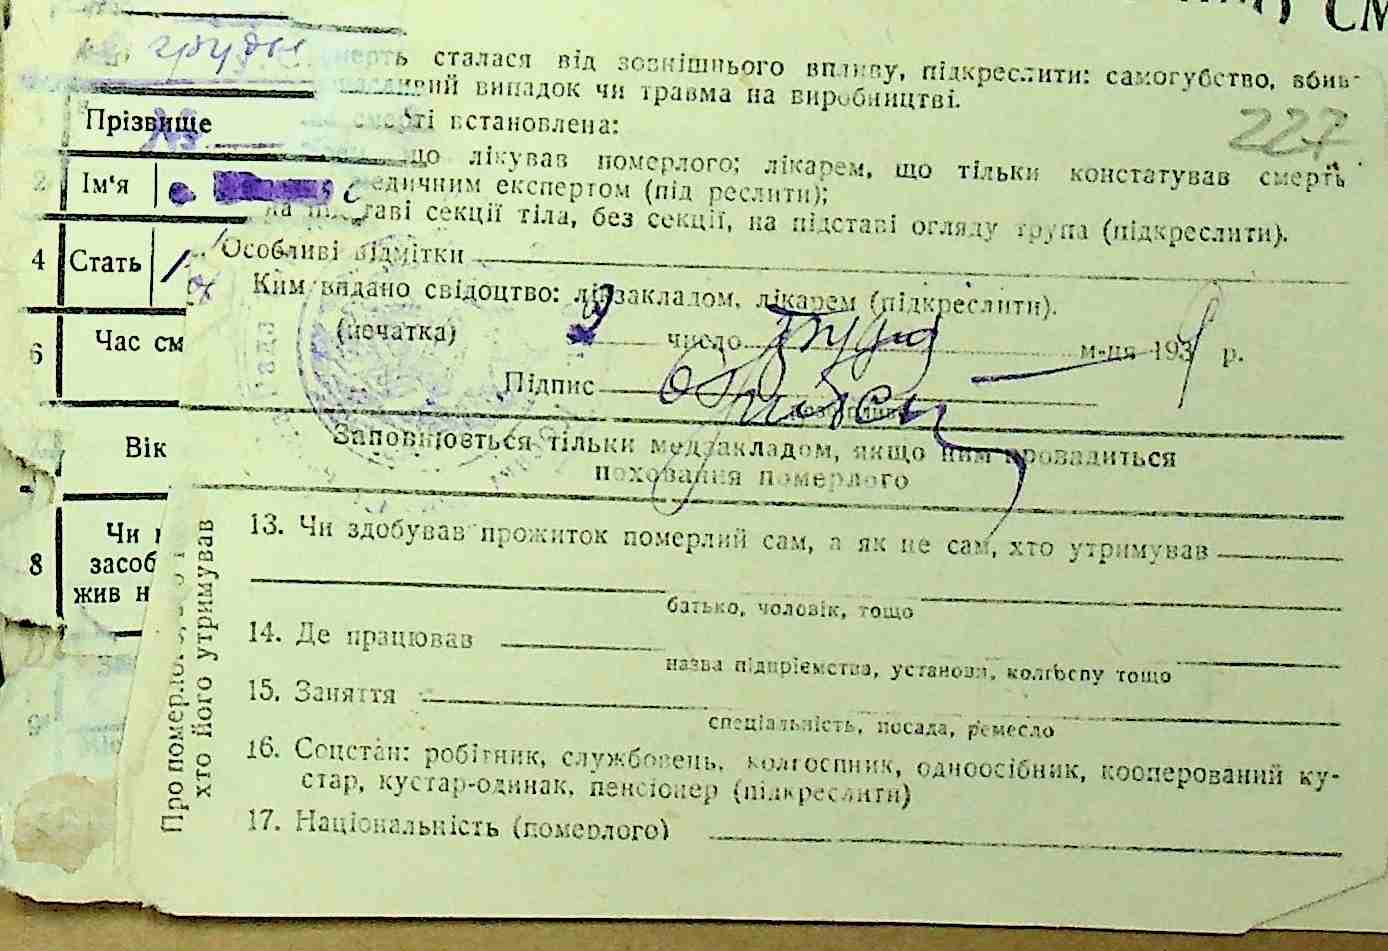 СМ
груд
смерть сталася від зовнішнього впливу, підкреслити: самогубство, вбив-
випадок чи травма на виробництві.
227
Прізвище
смерті встановлена:
що лікував померлого; лікарем, що тільки констатував смерть
2 Ім'я
медичним експертом (під реслити);
на підставі секції тіла, без секції, на підставі огляду трупа (підкреслити).
4 Стать
Особливі відмітки
Ким видано свідоцтво: лікзакладом, лікарем (підкреслити).
6 Час см
(печатка) 9 число груд м-ця 193 р.
Підпис
Заповнюється тільки медзакладом, якщо ним провадиться
поховання померлого
Вік
8 Чи
засоб
жив н
Про померлого
хто його утримував
13. Чи здобував прожиток померлий сам, а як не сам, хто утримував
батько, чоловік, тощо
14. Де працював
назва підприємства, установи, колгоспу тощо
15. Заняття
спеціальність, посада, ремесло
16. Соцстан: робітник, службовець, колгоспник, одноосібник, кооперований ку-
стар, кустар-одинак, пенсіонер (підкреслити)
17. Національність (померлого)
9